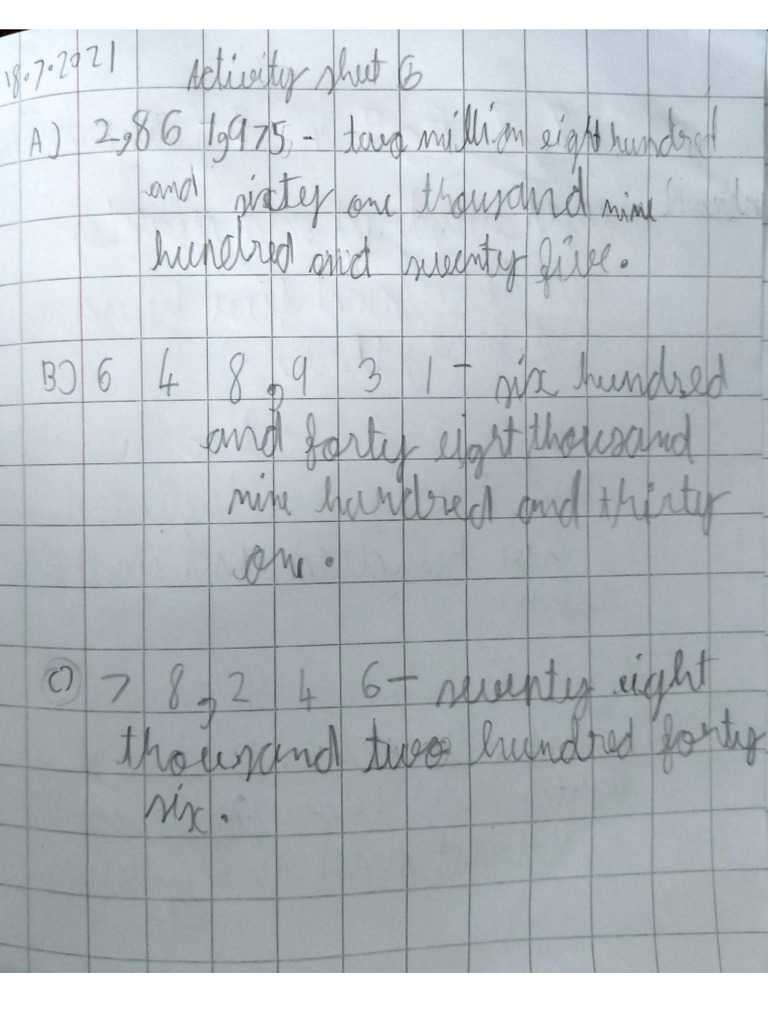 18.7.2021 Activity sheet 6
A) 2,861,975 - two million eight hundred
and sixty one thousand nine
hundred and seventy five.
B) 6 4 8,9 3 1 - six hundred
and forty eight thousand
nine hundred and thirty
one.
C) 7 8,2 4 6 - seventy eight
thousand two hundred forty
six.